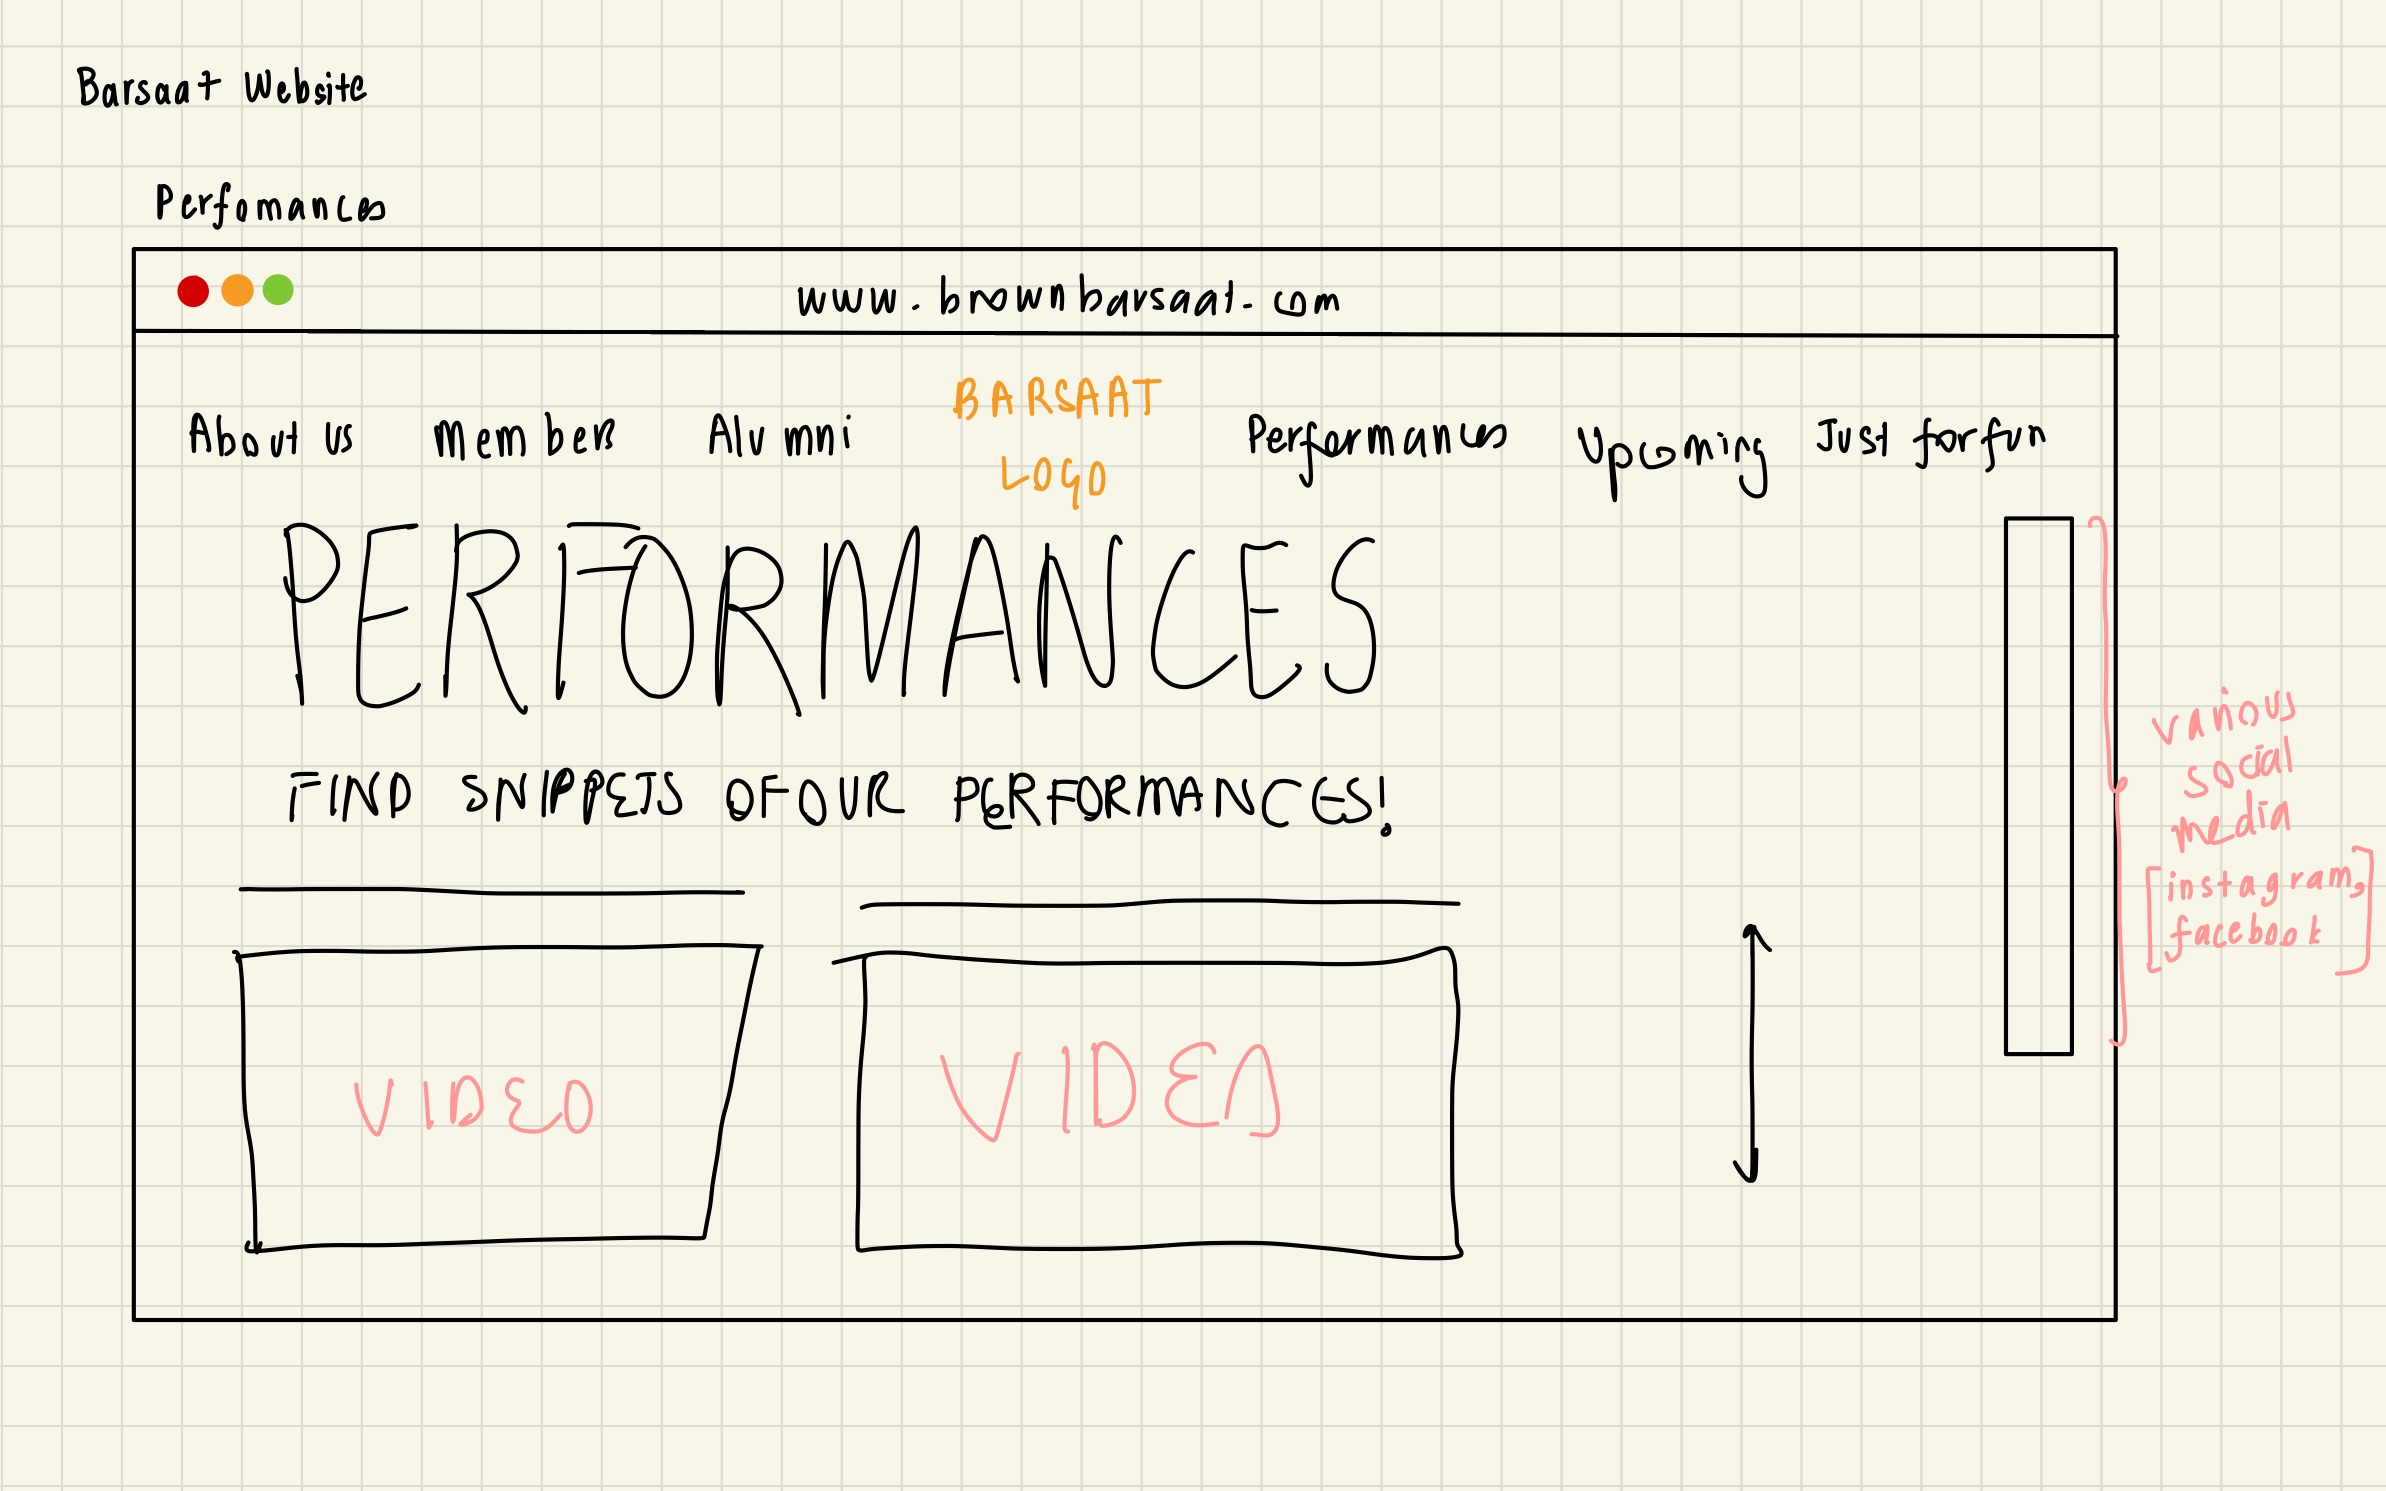 Barsaat Website
Perfomances
www.brownbarsaat.com
About us Members Alumni BARSAAT LOGO Performances Upcoming Just for fun
PERFORMANCES
FIND SNIPPETS OF OUR PERFORMANCES!
VIDEO VIDEO
various
social
media
[instagram,
facebook]